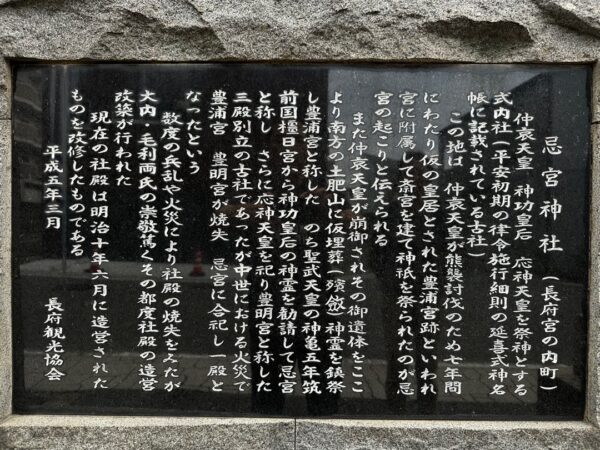 忌宮神社 (長府宮の内町)
仲哀天皇 神功皇后 応神天皇を祭神とする
式内社(平安初期の律令施行細則の延喜式神名
帳に記載されている古社)
この地は 仲哀天皇が熊襲討伐のため七年間
にわたり仮の皇居とされた豊浦宮跡といわれ
宮に附属して斎宮を建て神祇を祭られたのが忌
宮の起こりと伝えられる
また仲哀天皇が崩御されその御遺体をここ
より南方の土肥山に仮埋葬(殯斂)神霊を鎮祭
し豊浦宮と称した のち聖武天皇の神亀五年筑
前国橿日宮から神功皇后の神霊を勧請して忌宮
と称し さらに応神天皇を祀り豊明宮と称した
三殿別立の古社であったが中世における火災で
豊浦宮 豊明宮が焼失 忌宮に合祀し一殿と
なったという
数度の兵乱や火災により社殿の焼失をみたが
大内・毛利両氏の崇敬篤くその都度社殿の造営
改築が行われた
現在の社殿は明治十年六月に造営された
ものを改修したものである
平成五年三月 長府観光協会